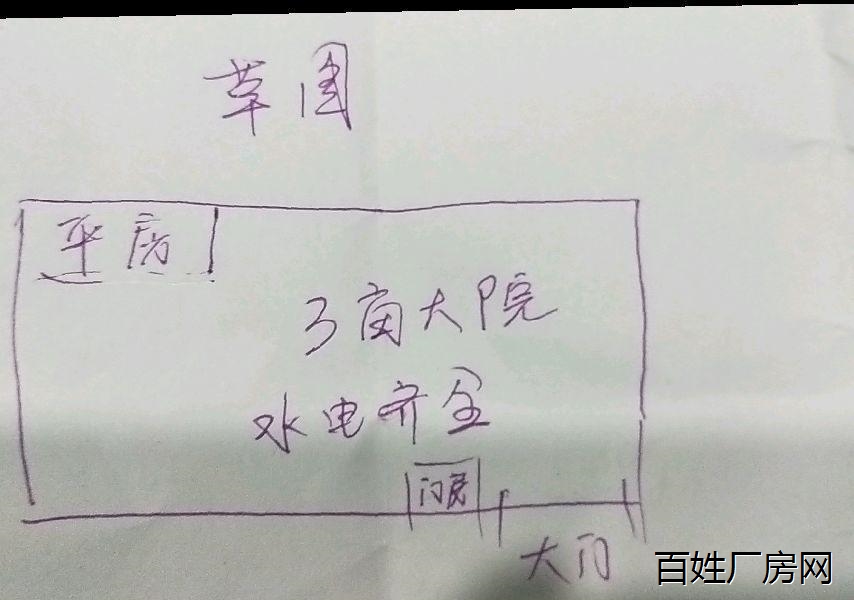 草图
平房
3亩大院
水电齐全
门房
大门
百姓厂房网